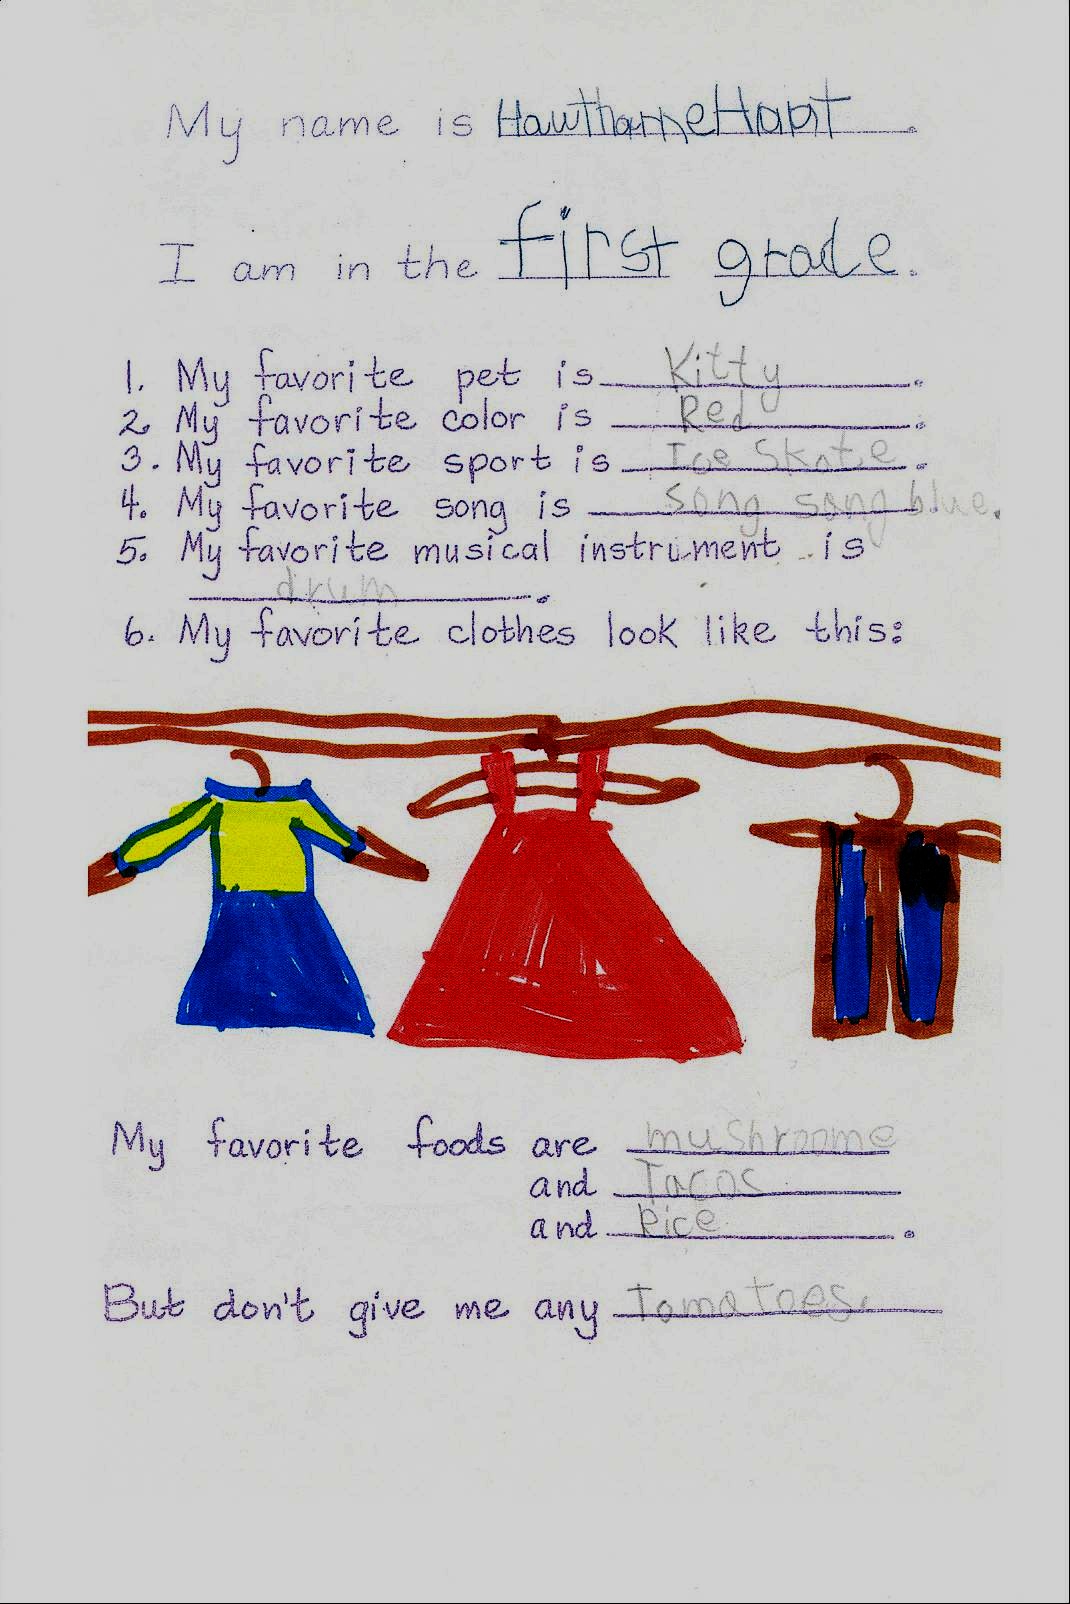 My name is Hawthorne Hoot.
I am in the first grade.
1. My favorite pet is Kitty.
2. My favorite color is Red.
3. My favorite sport is Ice Skate.
4. My favorite song is song song blue.
5. My favorite musical instrument is
drum.
6. My favorite clothes look like this:
My favorite foods are mushroome
and Tacos
and Rice.
But don't give me any Tomatoes.